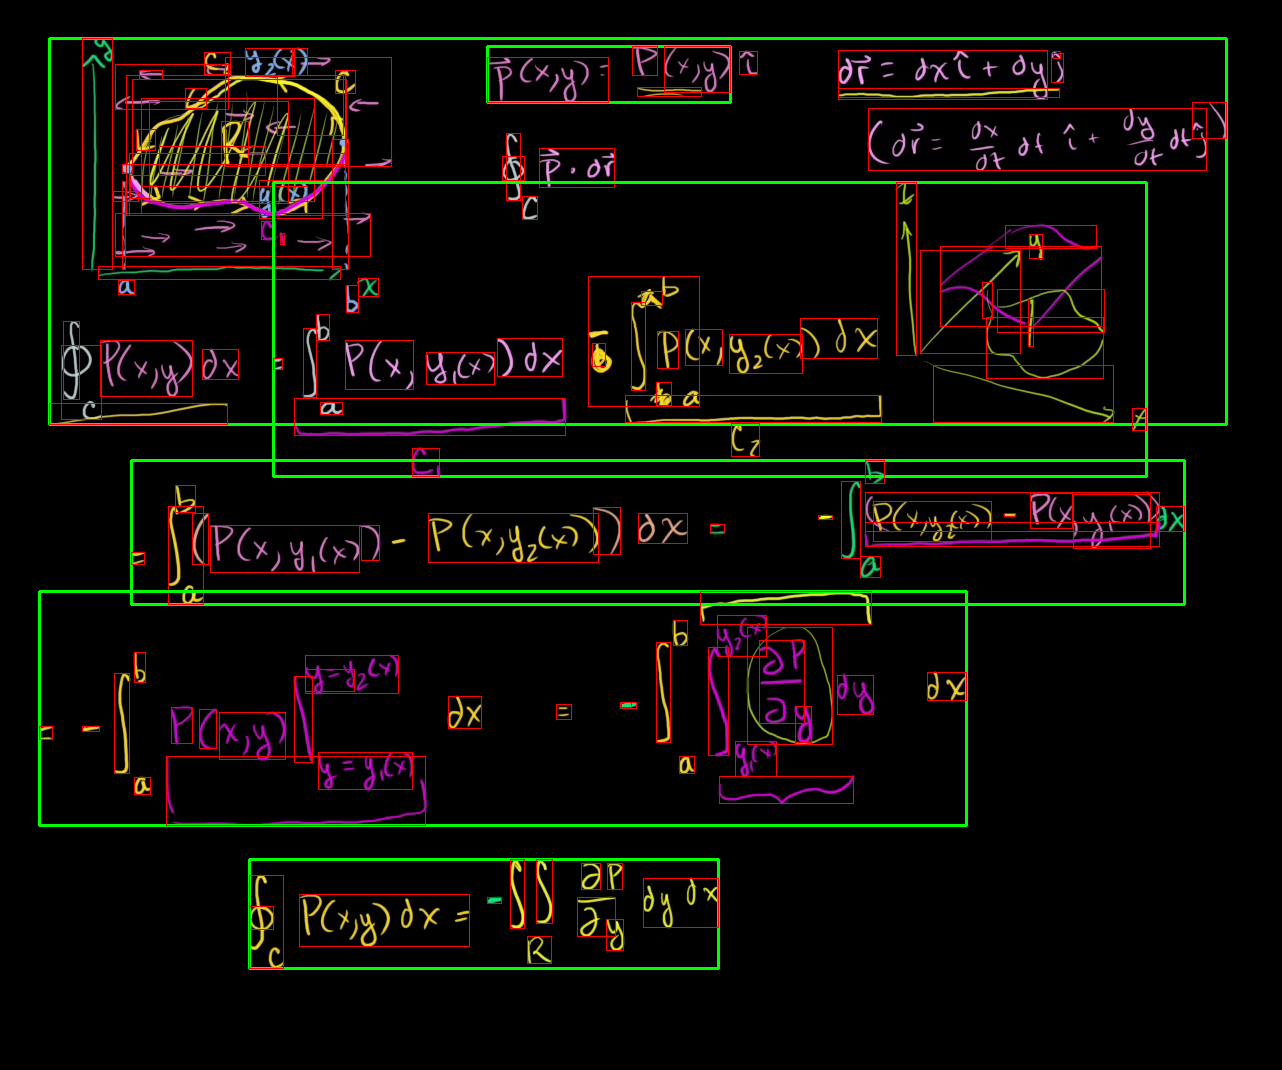 y C₂ y₂(x) C
R
y₁(x)
C₁
a b x
P⃗(x,y) = P(x,y) î
dr⃗ = dx î + dy ĵ
(dr⃗ = dx/dt dt î + dy/dt dt ĵ)
∮_C P⃗ · dr⃗
y
x
∮_C P(x,y) dx = ∫_a^b P(x, y₁(x)) dx - ∫_a^b P(x, y₂(x)) dx
C₁ C₂
= ∫_a^b (P(x, y₁(x)) - P(x, y₂(x))) dx = - ∫_a^b (P(x, y₂(x)) - P(x, y₁(x))) dx
= - ∫_a^b P(x,y) |_{y=y₁(x)}^{y=y₂(x)} dx = - ∫_a^b ∫_{y₁(x)}^{y₂(x)} ∂P/∂y dy dx
∮_C P(x,y) dx = - ∬_R ∂P/∂y dy dx